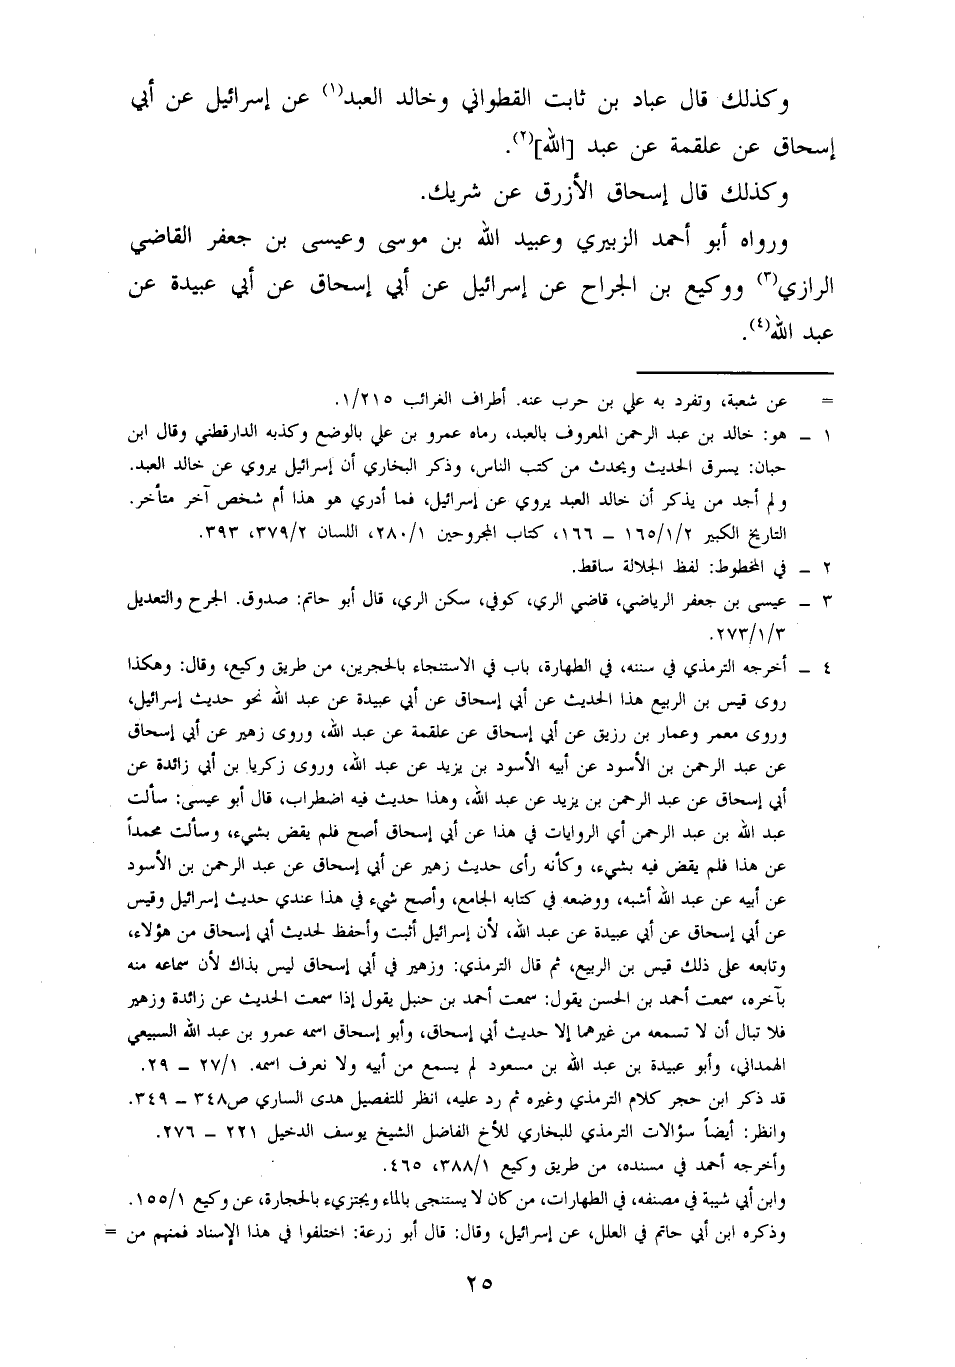 وكذلك قال عباد بن ثابت القطواني وخالد العبد(١) عن إسرائيل عن أبي
إسحاق عن علقمة عن عبد [الله](٢).
وكذلك قال إسحاق الأزرق عن شريك.
ورواه أبو أحمد الزبيري وعبيد الله بن موسى وعيسى بن جعفر القاضي
الرازي(٣) ووكيع بن الجراح عن إسرائيل عن أبي إسحاق عن أبي عبيدة عن
عبد الله(٤).
= عن شعبة، وتفرد به علي بن حرب عنه. أطراف الغرائب ١/٢١٥.
١ – هو: خالد بن عبد الرحمن المعروف بالعبد، رماه عمرو بن علي بالوضع وكذبه الدارقطني وقال ابن
حبان: يسرق الحديث ويحدث من كتب الناس، وذكر البخاري أن إسرائيل يروي عن خالد العبد.
ولم أجد من يذكر أن خالد العبد يروي عن إسرائيل، فما أدري هو هذا أم شخص آخر متأخر.
التاريخ الكبير ١٦٥/١/٢ – ١٦٦، كتاب المجروحين ٢٨٠/١، اللسان ٣٧٩/٢، ٣٩٣.
٢ – في المخطوط: لفظ الجلالة ساقط.
٣ – عيسى بن جعفر الرياضي، قاضي الري، كوفي، سكن الري، قال أبو حاتم: صدوق. الجرح والتعديل
٢٧٣/١/٣.
٤ – أخرجه الترمذي في سننه، في الطهارة، باب في الاستنجاء بالحجرين، من طريق وكيع، وقال: وهكذا
روى قيس بن الربيع هذا الحديث عن أبي إسحاق عن أبي عبيدة عن عبد الله نحو حديث إسرائيل،
وروى معمر وعمار بن رزيق عن أبي إسحاق عن علقمة عن عبد الله، وروى زهير عن أبي إسحاق
عن عبد الرحمن بن الأسود عن أبيه الأسود بن يزيد عن عبد الله، وروى زكريا بن أبي زائدة عن
أبي إسحاق عن عبد الرحمن بن يزيد عن عبد الله، وهذا حديث فيه اضطراب، قال أبو عيسى: سألت
عبد الله بن عبد الرحمن أي الروايات في هذا عن أبي إسحاق أصح فلم يقض بشيء، وسألت محمداً
عن هذا فلم يقض فيه بشيء، وكأنه رأى حديث زهير عن أبي إسحاق عن عبد الرحمن بن الأسود
عن أبيه عن عبد الله أشبه، ووضعه في كتابه الجامع، وأصح شيء في هذا عندي حديث إسرائيل وقيس
عن أبي إسحاق عن أبي عبيدة عن عبد الله، لأن إسرائيل أثبت وأحفظ لحديث أبي إسحاق من هؤلاء،
وتابعه على ذلك قيس بن الربيع، ثم قال الترمذي: وزهير في أبي إسحاق ليس بذاك لأن سماعه منه
بآخره، سمعت أحمد بن الحسن يقول: سمعت أحمد بن حنبل يقول إذا سمعت الحديث عن زائدة وزهير
فلا تبال أن لا تسمعه من غيرهما إلا حديث أبي إسحاق، وأبو إسحاق اسمه عمرو بن عبد الله السبيعي
الهمداني، وأبو عبيدة بن عبد الله بن مسعود لم يسمع من أبيه ولا نعرف اسمه. ٢٧/١ – ٢٩.
قد ذكر ابن حجر كلام الترمذي وغيره ثم رد عليه، انظر للتفصيل هدى الساري ص٣٤٨ – ٣٤٩.
وانظر: أيضاً سؤالات الترمذي للبخاري للأخ الفاضل الشيخ يوسف الدخيل ٢٢١ – ٢٧٦.
وأخرجه أحمد في مسنده، من طريق وكيع ٣٨٨/١، ٤٦٥.
وابن أبي شيبة في مصنفه، في الطهارات، من كان لا يستنجى بالماء ويجتزيء بالحجارة، عن وكيع ١٥٥/١.
وذكره ابن أبي حاتم في العلل، عن إسرائيل، وقال: قال أبو زرعة: اختلفوا في هذا الإسناد فمنهم من =
٢٥